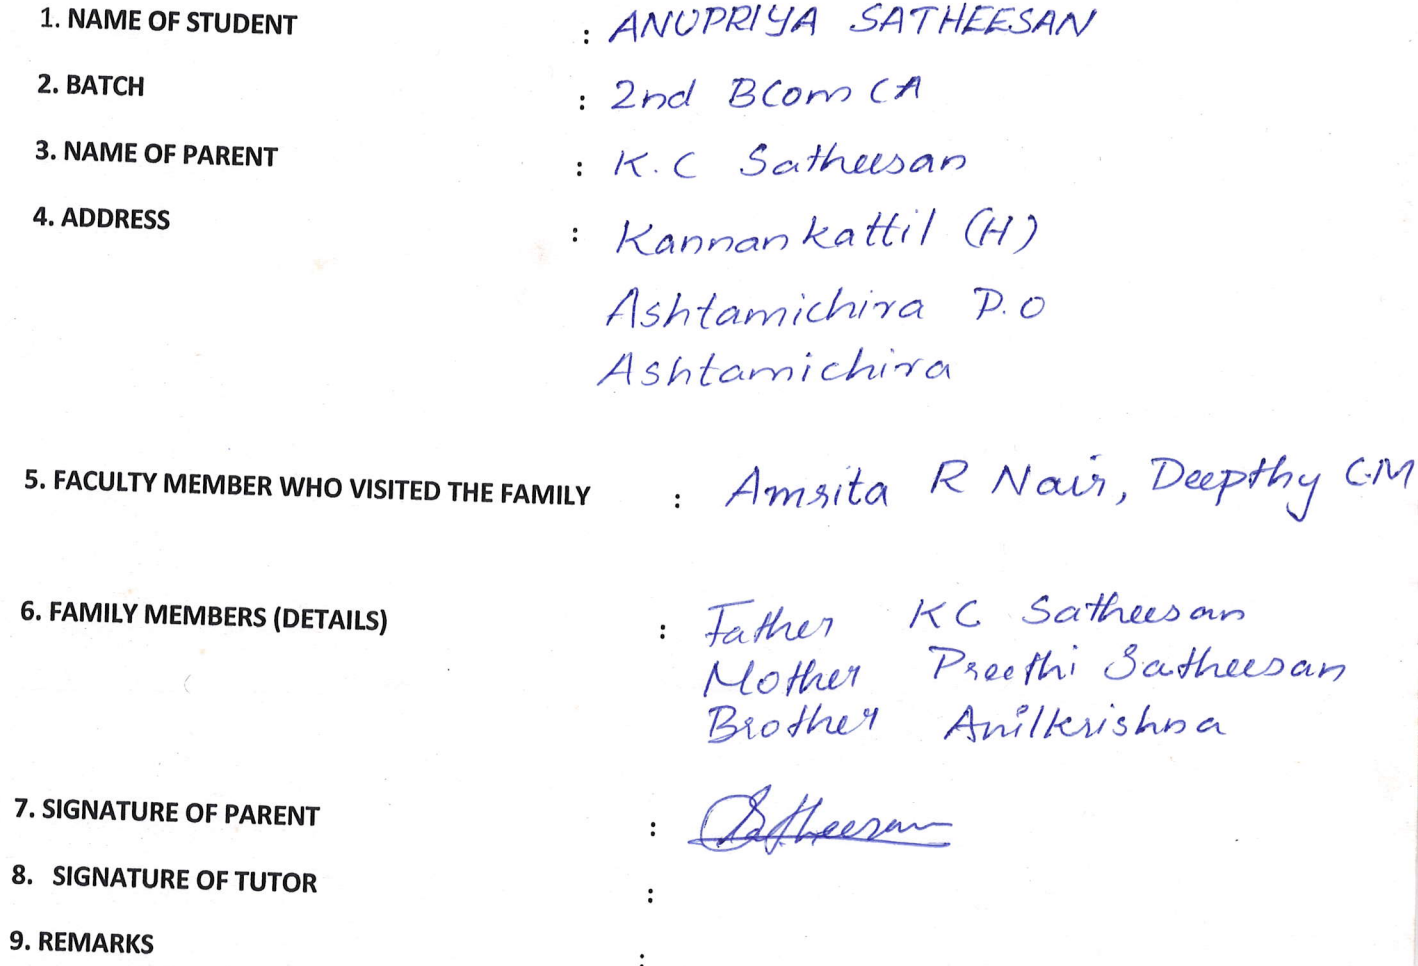 1. NAME OF STUDENT : ANUPRIYA SATHEESAN
2. BATCH : 2nd BCom CA
3. NAME OF PARENT : K.C Satheesan
4. ADDRESS : Kannankattil (H)
Ashtamichira P.O
Ashtamichira
5. FACULTY MEMBER WHO VISITED THE FAMILY : Amrita R Nair, Deepthy C.M
6. FAMILY MEMBERS (DETAILS) : Father KC Satheesan
Mother Preethi Satheesan
Brother Anilkrishna
7. SIGNATURE OF PARENT : Satheesan
8. SIGNATURE OF TUTOR :
9. REMARKS :